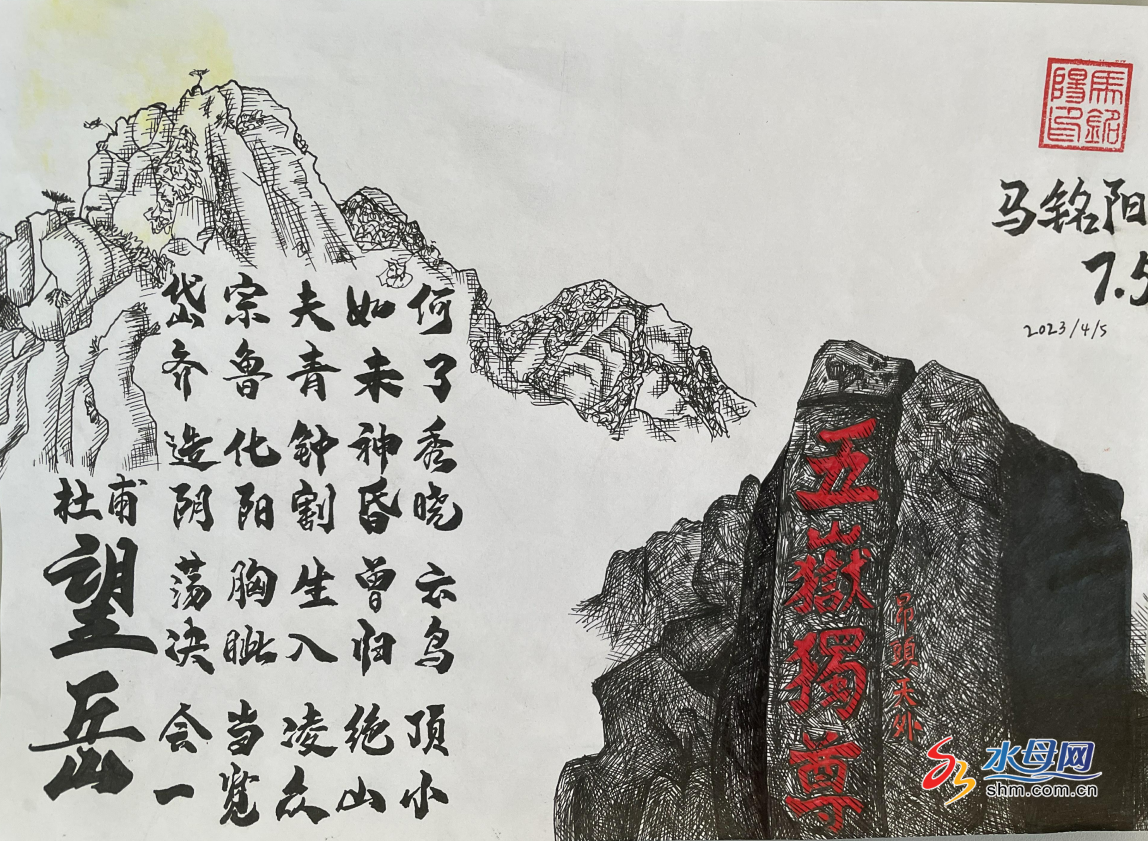 望岳
杜甫
岱宗夫如何
齐鲁青未了
造化钟神秀
阴阳割昏晓
荡胸生曾云
决眦入归鸟
会当凌绝顶
一览众山小
馬銘陽印
马铭阳
7.5
2023/4/5
五嶽獨尊
昂頭天外
水母网
shm.com.cn